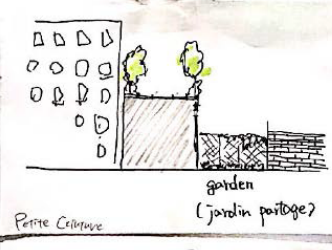 garden
(jardin partage)
Petite Ceinture